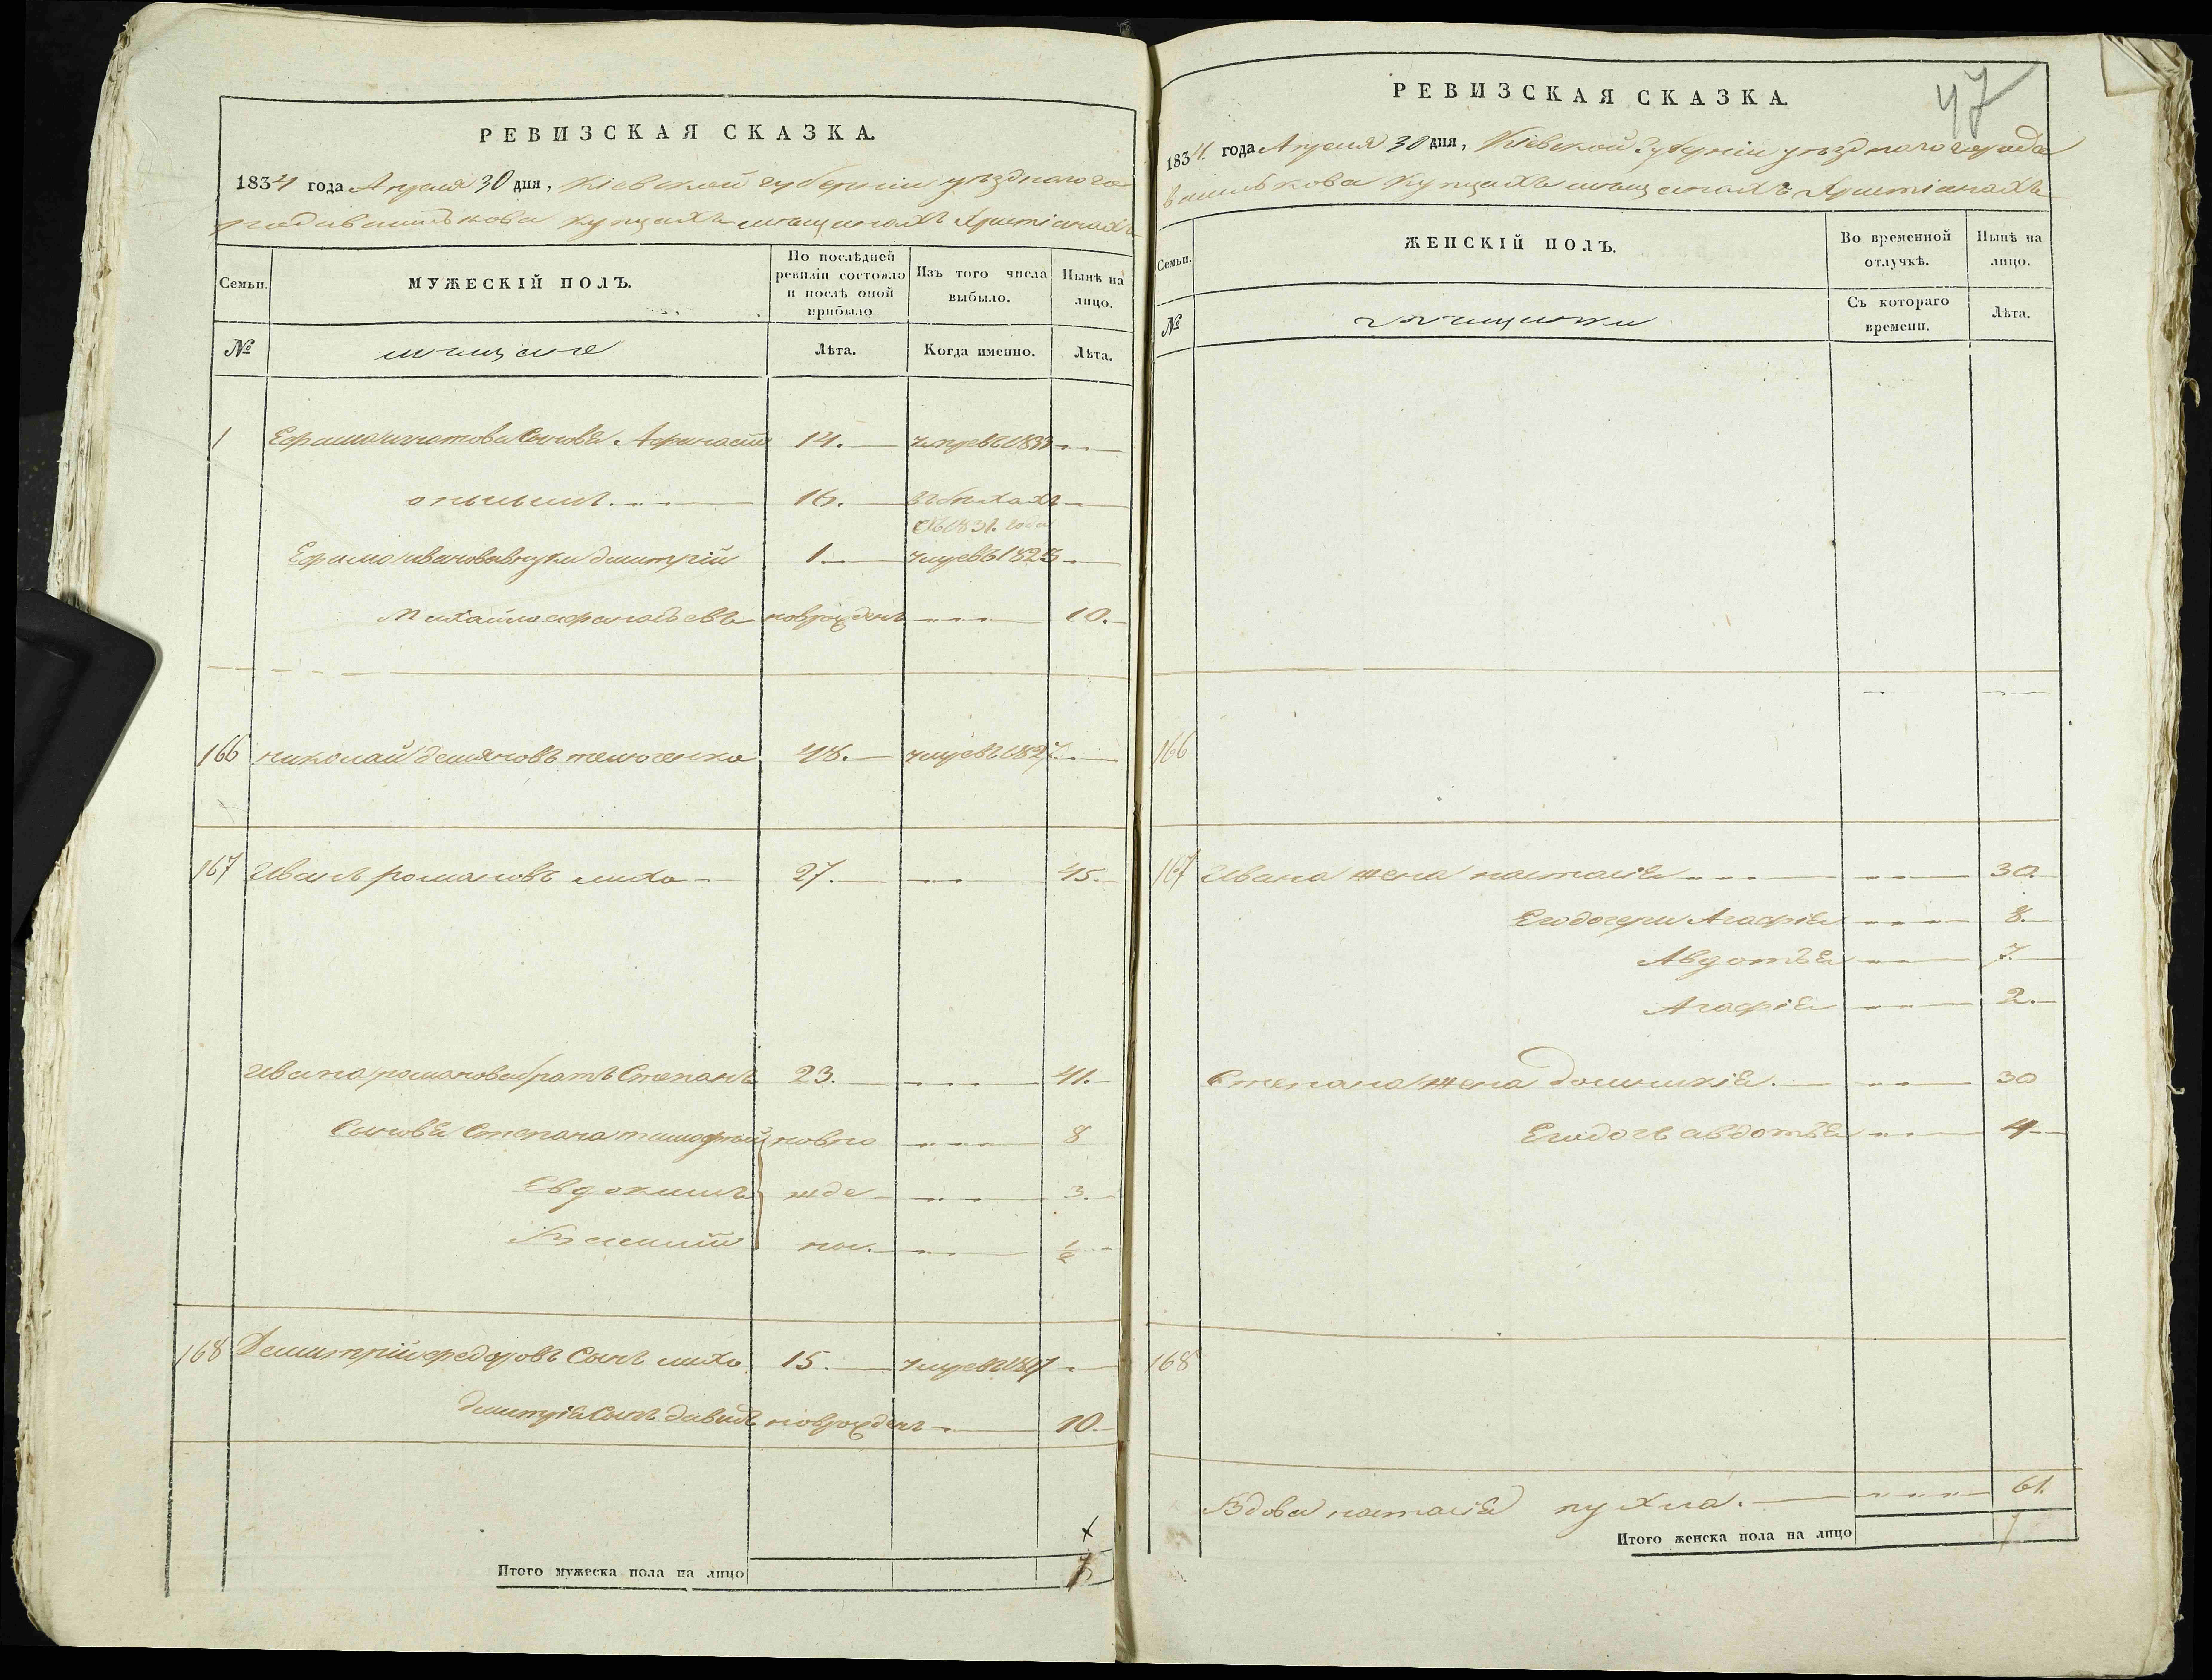 РЕВИЗСКАЯ СКАЗКА.
1834 года Апреля 30 дня, Кіевской губерніи уѣздного го
рода василькова купцахъ мещанахъ Христіанахъ
Семьи.
МУЖЕСКІЙ ПОЛЪ.
По послѣдней ревизіи состояло и послѣ оной прибыло
Изъ того числа выбыло.
Нынѣ на лицо.
№
мещане
Лѣта.
Когда именно.
Лѣта.
Ефима сыновья Афанасій 14. умре въ 1833
16. въ бегахъ
съ 1831. года
Ефима иванова внуки дмитрій 1 умре въ 1823
Михайло афанасьевъ новрожденъ 10.
166 николай демяновъ 48. умре въ 1827.
167 Иванъ романовъ лихо 27. 45.
Ивана романова братъ Степанъ 23. 41.
Сыновья Степана тимофей новро 8
Евдокимъ жде 3.
ны.
168 Демитрій федоровъ Сынъ лихо 15. умре въ
дмитрія Сынъ давидъ новрожденъ 10.
Итого мужеска пола на лицо 7
47
РЕВИЗСКАЯ СКАЗКА.
1834. года Апреля 30 дня, Кіевской Губерніи уѣздного города
василькова Купцахъ мещанахъ Христіанахъ
Семьи.
ЖЕНСКІЙ ПОЛЪ.
Во временной отлучкѣ.
Нынѣ на лицо.
№
мещанки
Съ котораго времени.
Лѣта.
166
167 Ивана жена настасія 30.
Его дочери Агафія 8.
Авдотья 7.
Агафія 2.
Степана жена домникія 30
Его дочь авдотья 4
168
Вдова настасія пухла. 61.
Итого женска пола на лицо 7